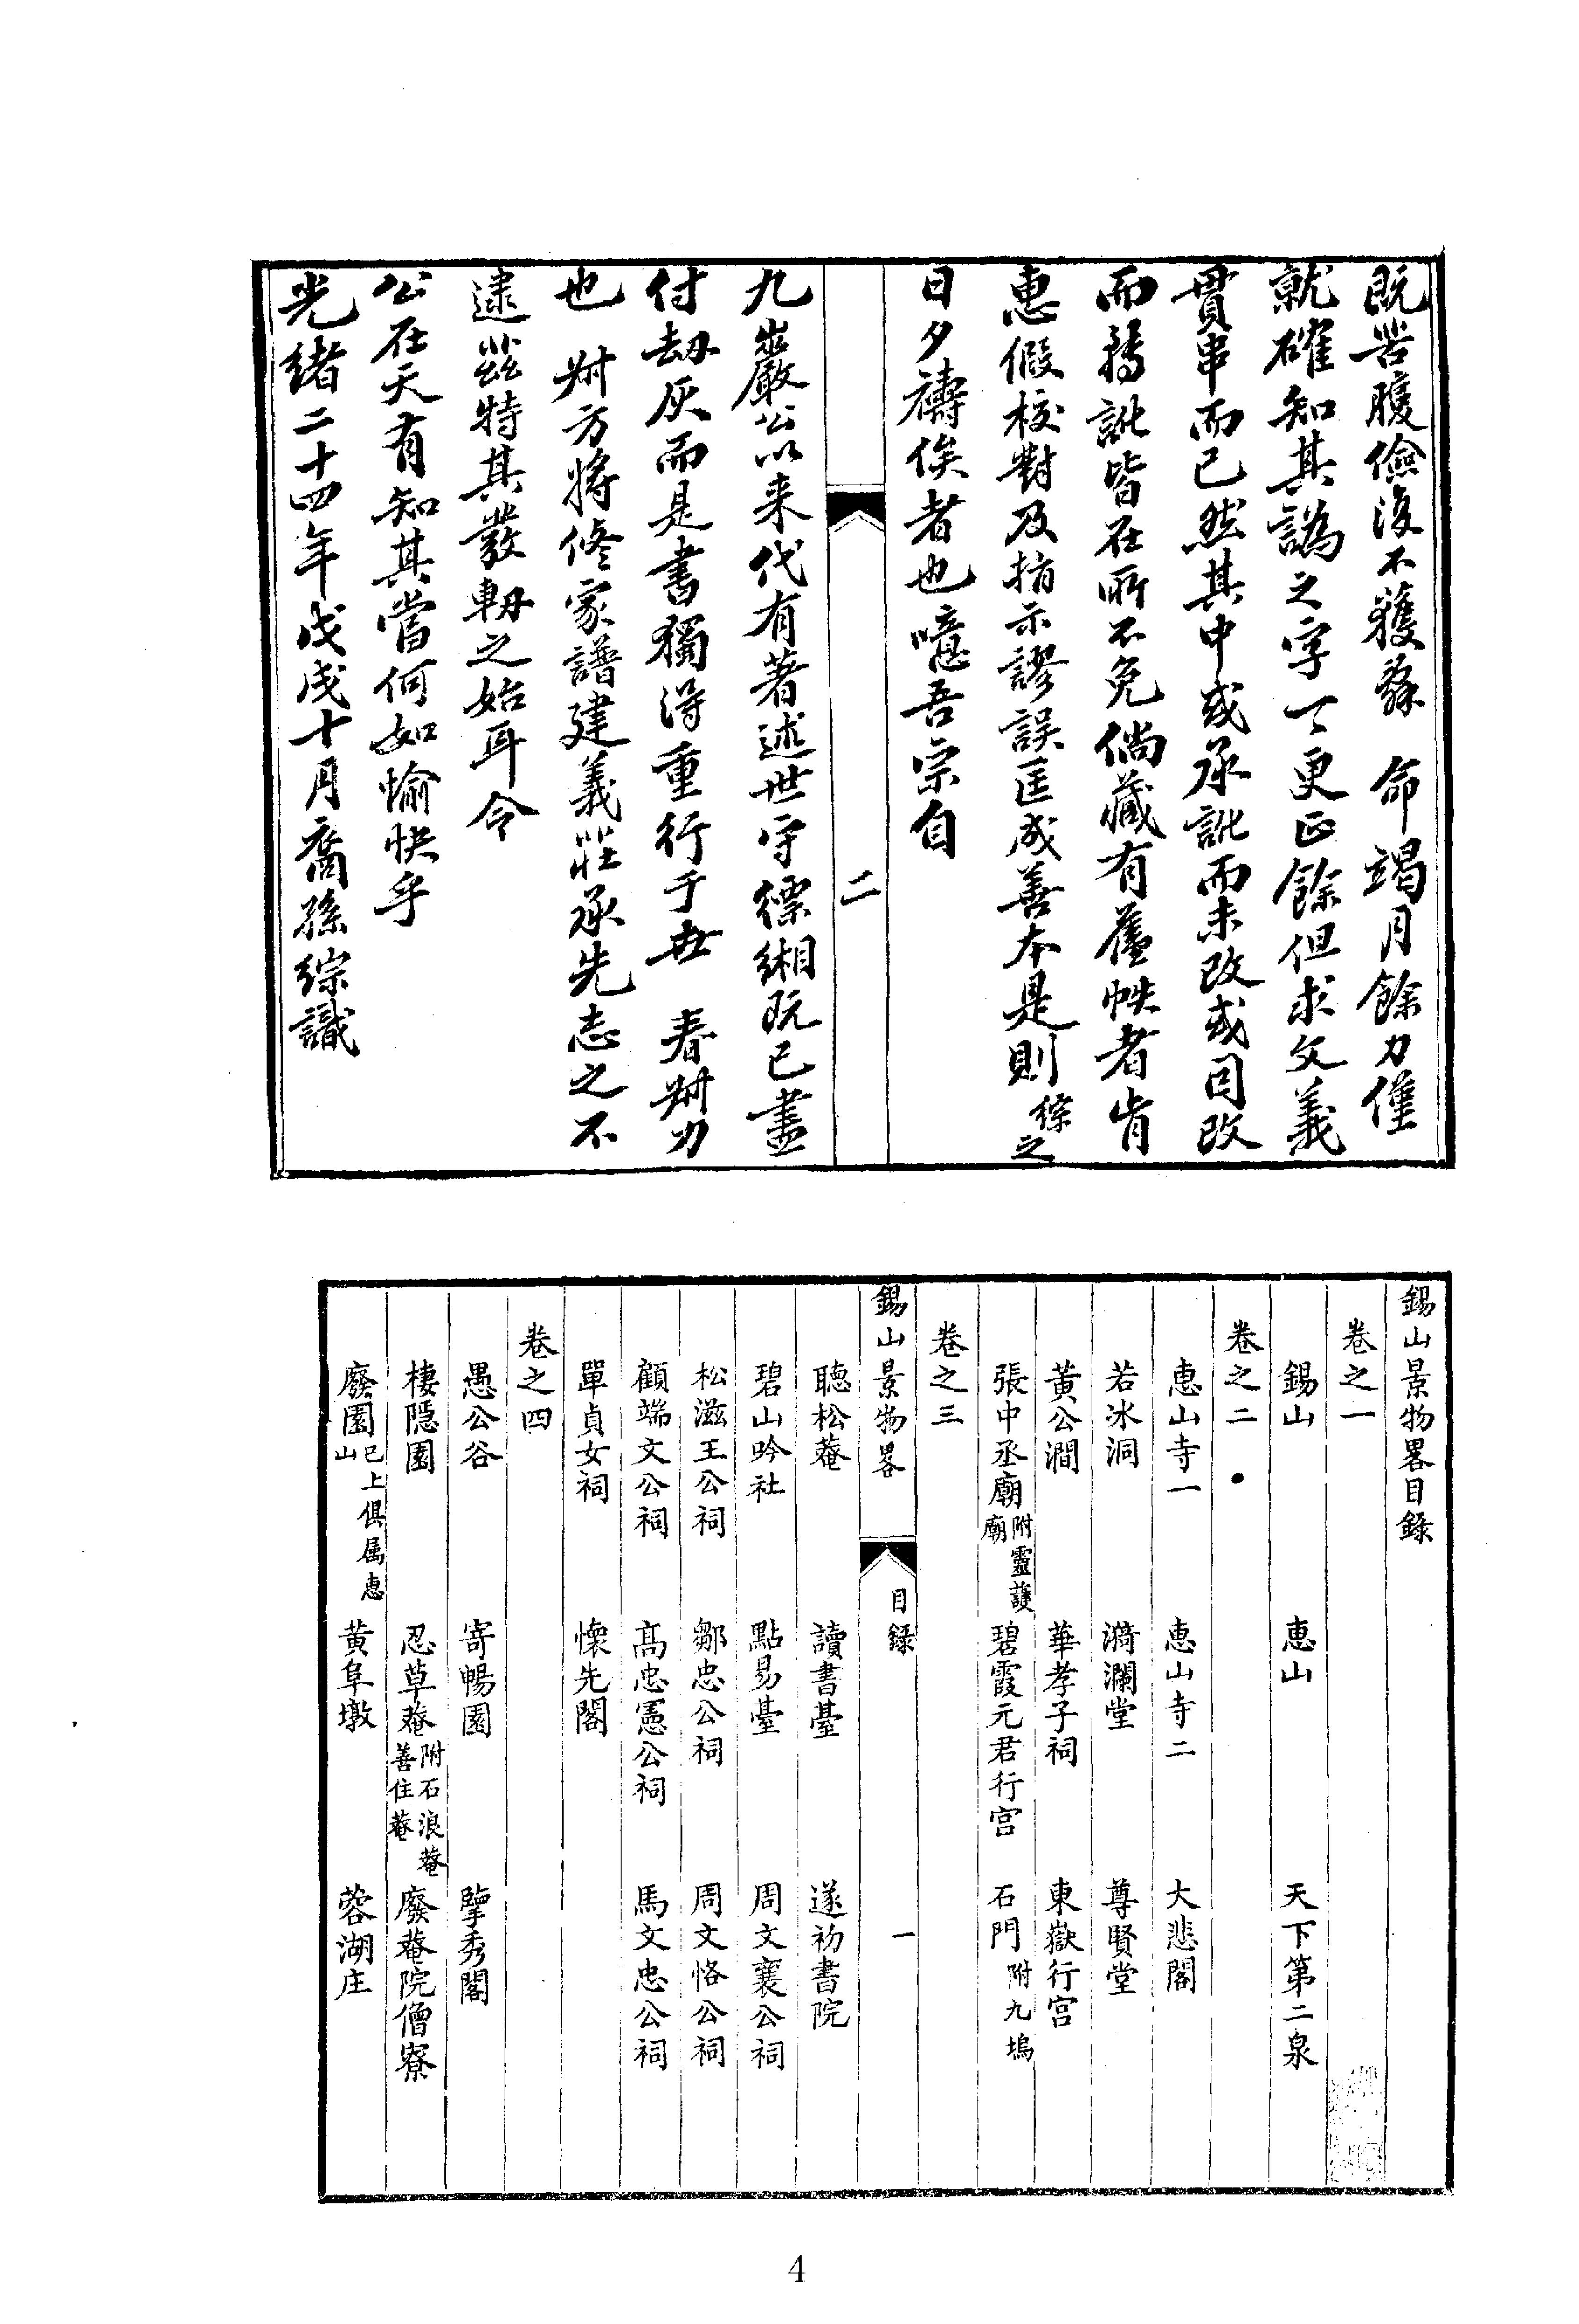 既苦腹儉復不獲辭　命竭月餘力僅
就確知其譌之字一一更正餘但求文義
貫串而已然其中或承訛而未改或因改
而轉訛皆在所不免倘藏有舊帙者肯
惠假校對及指示謬誤匡成善本是則綜之
日夕禱俟者也噫吾宗自
二
九巖公以来代有著述世守縹緗既已盡
付劫灰而是書獨得重行于世　春尌力
也　尌方將修家譜建義莊承先志之不
逮茲特其發軔之始耳令
公在天有知其當何如愉快乎
光緒二十四年戊戌十月裔孫綜識
錫山景物畧目錄
卷之一
錫山　惠山　天下第二泉
卷之二
惠山寺一　惠山寺二　大悲閣
若冰洞　漪瀾堂　尊賢堂
黃公澗　華孝子祠　東嶽行宮
張中丞廟附靈護廟　碧霞元君行宮　石門附九塢
卷之三
錫山景物畧　目錄　一
聽松菴　讀書臺　遂初書院
碧山吟社　點易臺　周文襄公祠
松滋王公祠　鄒忠公祠　周文恪公祠
顧端文公祠　高忠憲公祠　馬文忠公祠
單貞女祠　懷先閣
卷之四
愚公谷　寄暢園　擥秀閣
棲隱園　忍草菴附石浪菴善住菴　廢菴院僧寮
廢園已上俱属惠山　黄阜墩　蓉湖庄
4